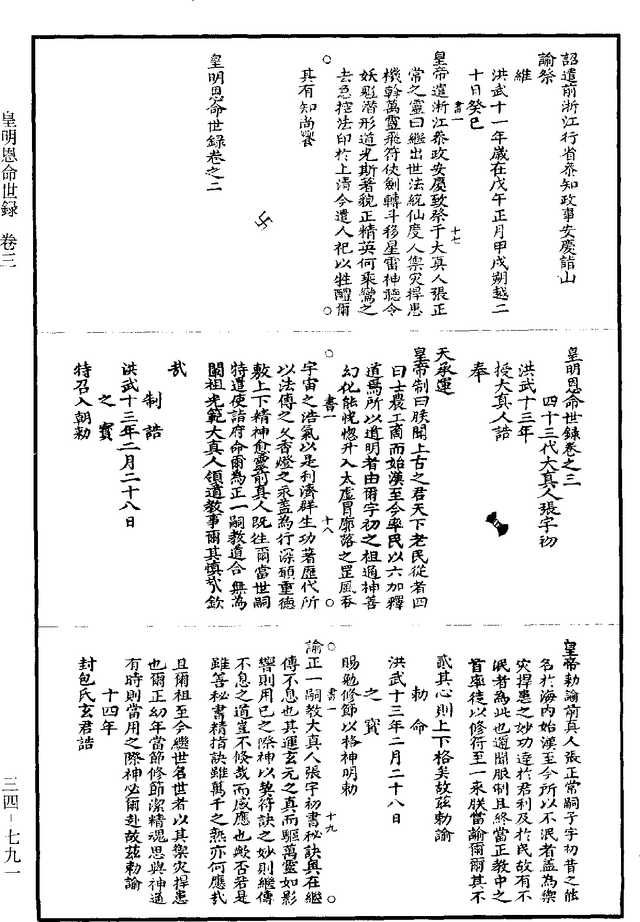 皇明恩命世録 卷三
三四-七九一
詔遣前浙江行省叅知政事安慶詣山
諭祭
維
洪武十一年歲在戊午正月甲戌朔越二
十日癸巳
皇帝遣浙江叅政安慶致祭于大真人張正
書一
十七
常之靈曰繼出世法統仙度人禦灾捍患
機斡萬靈飛符使劍轉斗移星雷神聽令
妖魁潜形道光斯著貌正精英何乘鸞之
去急控法印於上清今遣人祀以牲醴爾
其有知尚饗
皇明恩命世録卷之二
卐
皇明恩命世録卷之三
四十三代大真人張宇初
洪武十三年
授大真人誥
奉
天承運
皇帝制曰朕聞上古之君天下老民從者四
曰士農工商而始漢至今率民以六加釋
道焉所以道明者由爾宇初之祖通神善
幻化能恍惚升入太虛冒廓落之罡風吞
書一
十八
宇宙之浩氣以是利濟群生功著歷代所
以法傳之久香燈之永蓋為行深願重德
敷上下精神愈靈前真人既往爾當世嗣
特遣使詣府命爾為正一嗣教道合無為
闡祖光範大真人領道教事爾其慎哉欽
哉
制誥
之寳
洪武十三年二月二十八日
特召入朝勑
皇帝勑諭前真人張正常嗣子宇初昔之能
名於海内始漢至今所以不泯者蓋為禦
灾捍患之妙功達於君利及於民故有不
泯者為此也邇聞服制且終當正教中之
首率徒以修行至一来朕當諭爾爾其不
貳其心則上下格矣故茲勑諭
勑命
之寳
洪武十三年二月二十八日
賜勉修節以格神明勑
書一
十九
諭正一嗣教大真人張宇初書秘訣與在繼
傳不息也其運玄元之真而驅萬靈如影
響則用已之際神以契符訣之妙則繼傳
不息之道豈不倐哉而感應也歟否若是
雖善秘書精指訣雖萬千之熟亦何應哉
且爾祖至今繼世名世者以其禦灾捍患
也爾正幼年當節修節潔精魂思與神通
有時則當用之際神必爾赴故茲勑諭
十四年
封包氏玄君誥